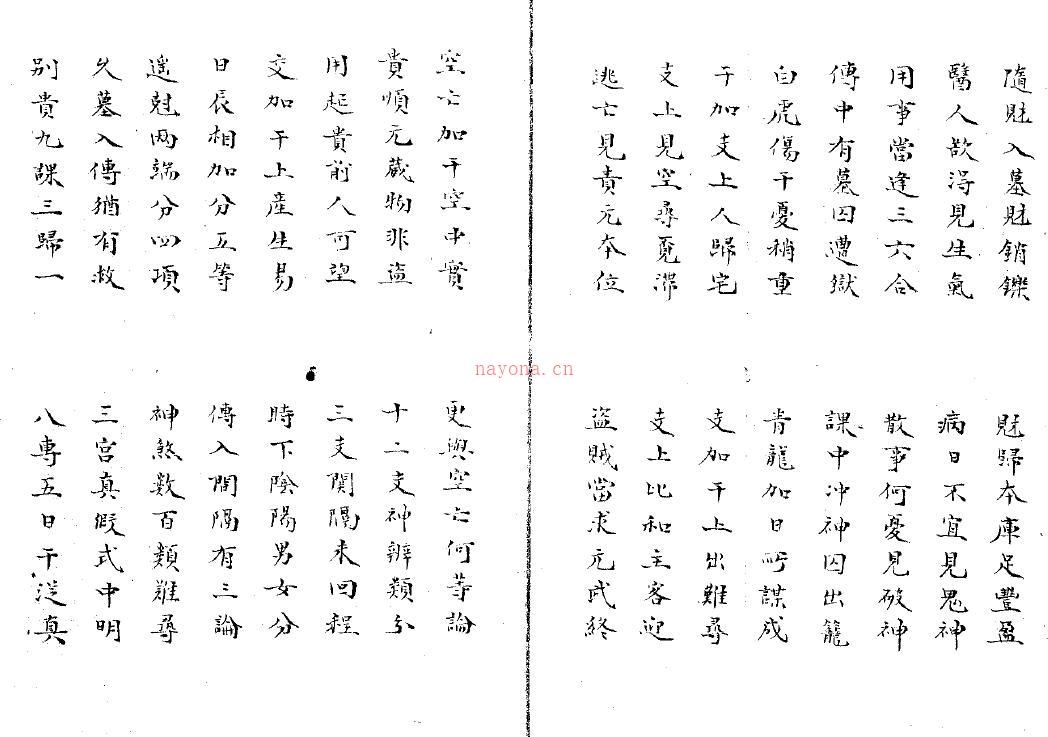 隨財入墓財銷鑠
財歸本庫足豐盈
醫人欲得見生氣
病日不宜見鬼神
用事當逢三六合
散事何憂見破神
傳中有墓囚遭獄
課中冲神囚出籠
白虎傷干憂稍重
青龍加日所謀成
干加支上人歸宅
支加干上出難尋
支上見空尋覓滯
支上比和主客迎
逃亡見責元本位
盜賊當求元武終
空亡加干空中實
更與空亡何等論
貴順元藏物非盜
十二支神辨類分
用起貴前人可望
三支関隔未回程
交加干上產生易
時下陰陽男女分
日辰相加分五等
傳入間隔有三論
遥尅两端分四項
神煞数百類難尋
久墓入傳猶有救
三宮真假式中明
別貴九課三歸一
八專五日干從真
nayona.cn